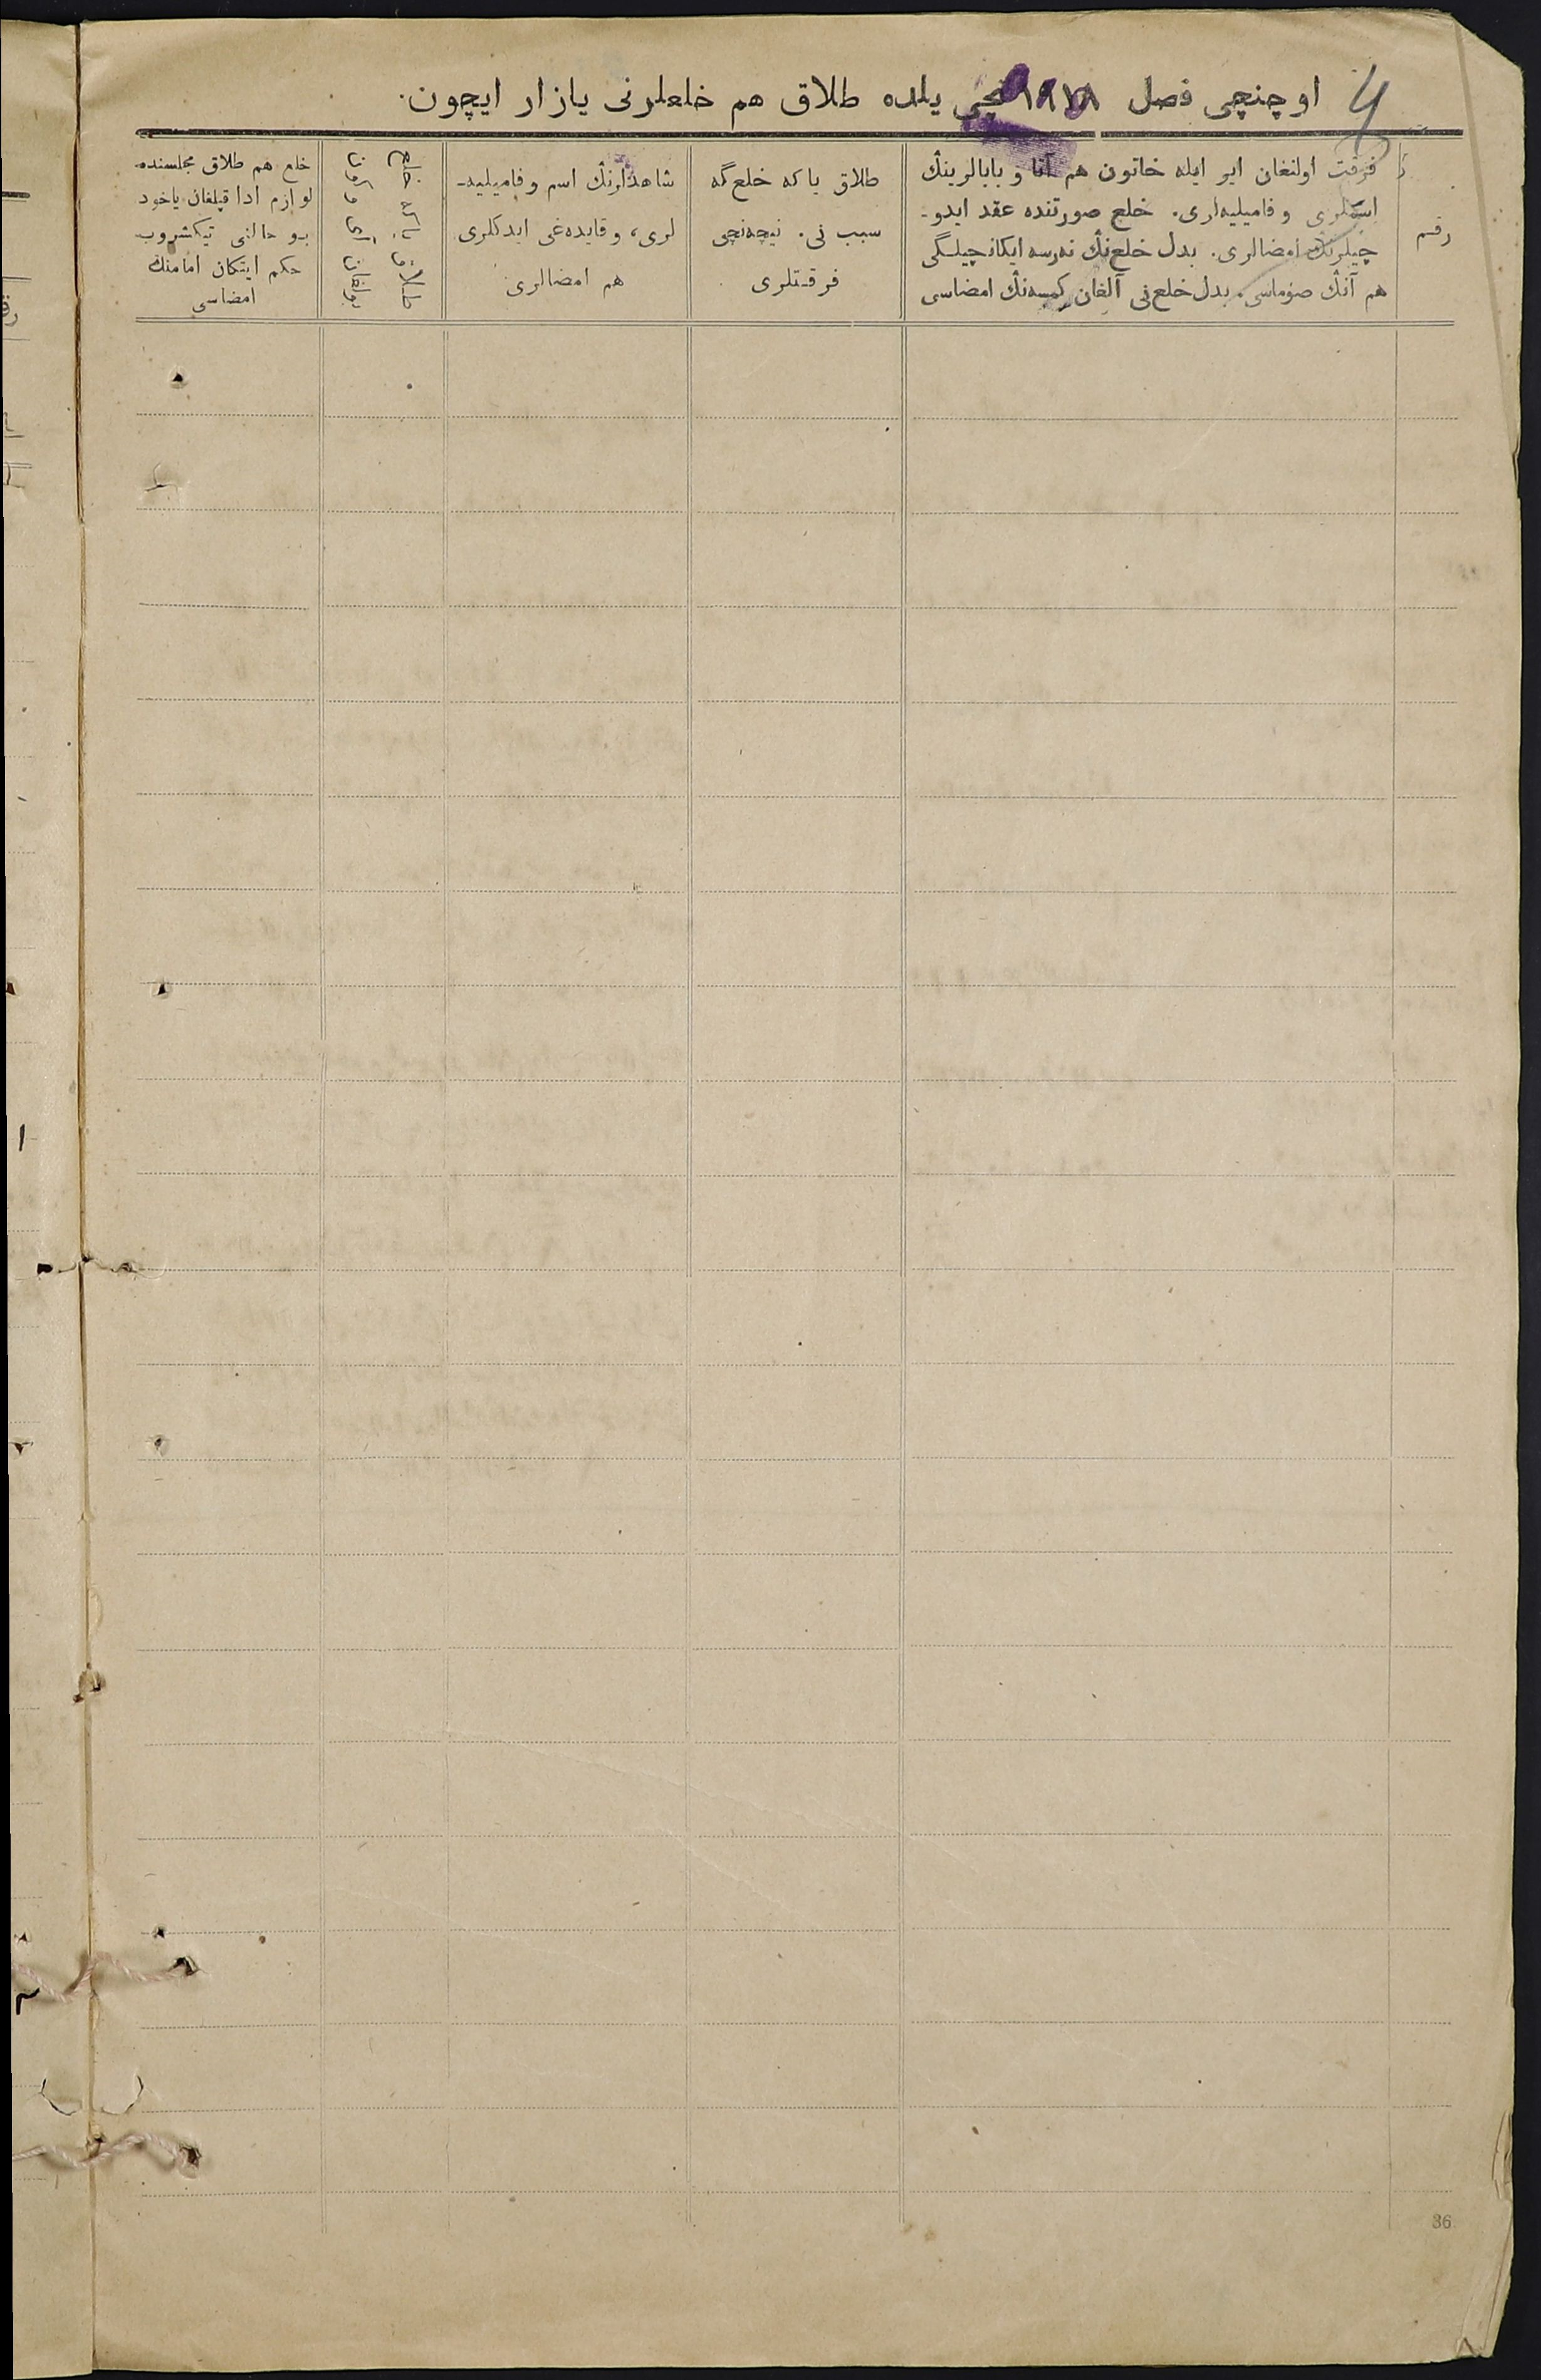 4
اوچنچی فصل ١٩١٨ نچی یلده طلاق هم خلعلرنی یازار ایچون.
رقم
فرقت اولنغان ایر ایله خاتون هم آنا و بابالرینڭ
اسملری و فامیلیه‌لری. خلع صورتنده عقد ایدو-
چیلرنڭ امضالری. بدل خلع‌نڭ نه‌رسه ایکانچیلگی
هم آنڭ صوماسی. بدل خلع‌نی آلغان کمسه‌نڭ امضاسی
طلاق یا که خلع گه
سبب نی. نیچه‌نچی
فرقتلری
شاهدلرنڭ اسم و فامیلیه-
لری، و قایده‌غی ایدکلری
هم امضالری
طلاق یا که خلع
بولغان آی و کون
خلع هم طلاق مجلسنده
لوازم ادا قیلغان یاخود
بو حالنی تیکشروب
حکم ایتکان امامنڭ
امضاسی
36